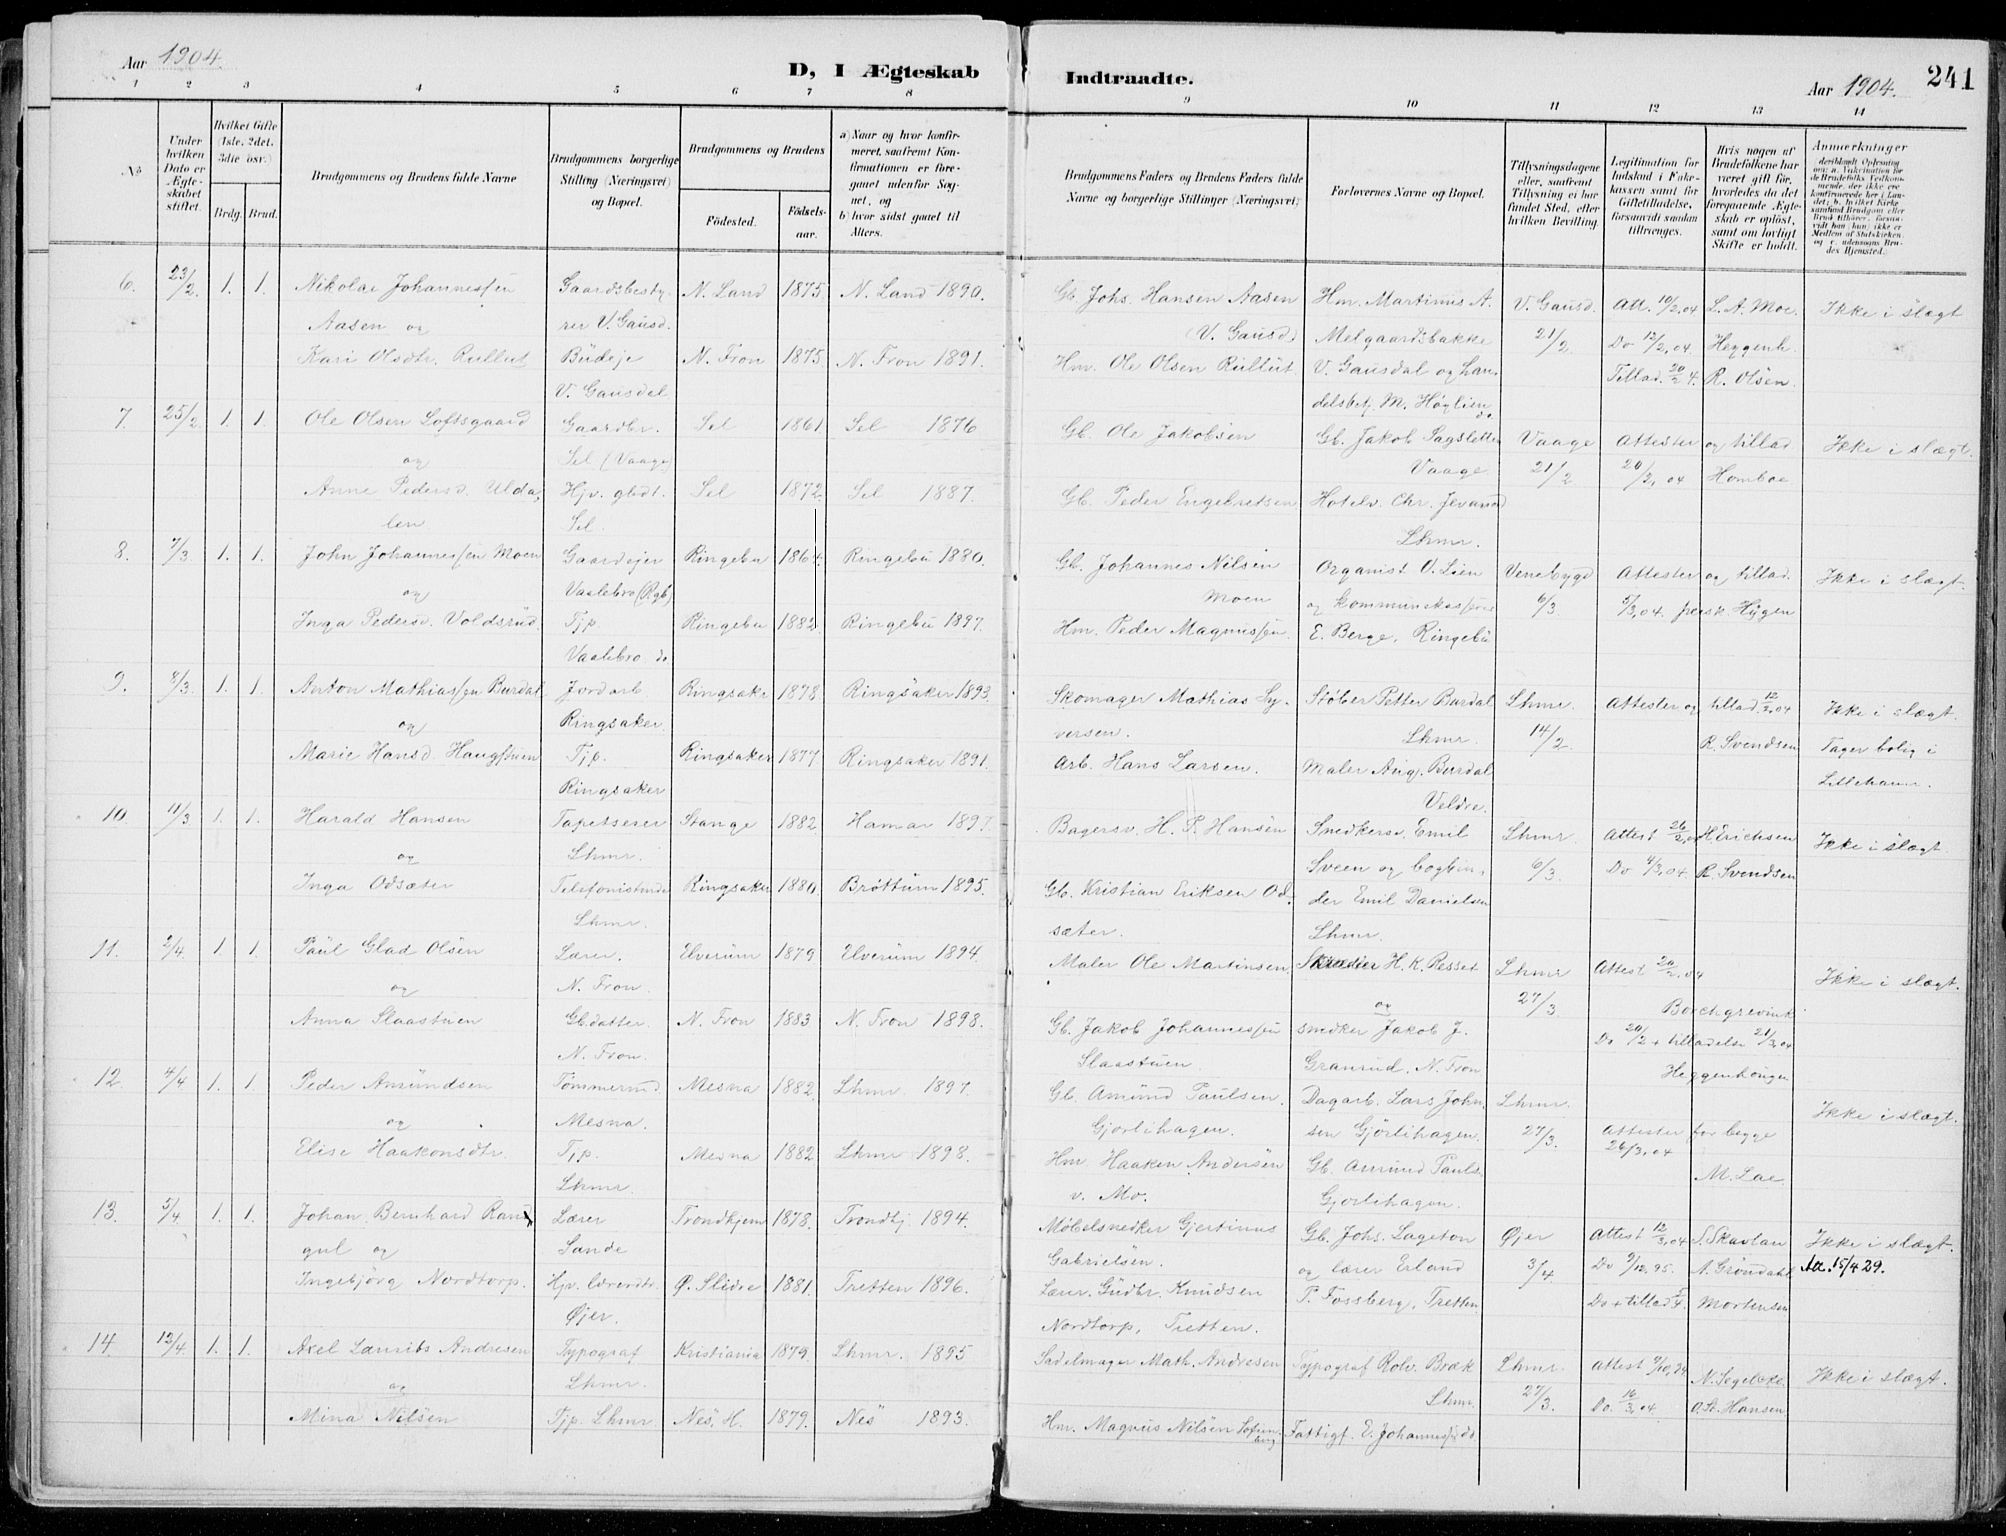 Aar 1904.
D, I Ægteskab Indtraadte.
Aar 1904.
241
1 2 3 4 5 6 7 8 9 10 11 12 13 14
No
Under hvilken Dato er Ægteskabet stiftet.
Hvilket Gifte (1ste, 2det, 3die osv.)
Brdg. Brud.
Brudgommens og Brudens fulde Navne
Brudgommens borgerlige Stilling (Næringsvei) og Bopæl.
Brudgommens og Brudens
Fødested. Fødselsaar.
a) Naar og hvor konfirmeret, saafremt Konfirmationen er foregaaet udenfor Sognet, og
b) hvor sidst gaaet til Alters.
Brudgommens Faders og Brudens Faders fulde Navne og borgerlige Stillinger (Næringsvei)
Forlovernes Navne og Bopæl.
Tillysningsdagene eller, saafremt Tillysning ei har fundet Sted, efter hvilken Bevilling.
Legitimation for Indskud i Enkekassen samt for Giftetilladelse, forsaavidt saadan tiltrænges.
Hvis nogen af Brudefolkene har været gift før, hvorledes da det foregaaende Ægteskab er opløst, samt om lovligt Skifte er holdt.
Anmærkninger
6. 23/2. 1. 1. Nikolai Johannessen Gaardsbesty- N. Land 1875 N. Land 1890. Gb. Johs. Hansen Aasen Hm. Martinus A. V. Gausd. Att. 10/2,04 L. A. Moe. Ikke i slægt
Aasen og rer V. Gausd. (V. Gausd.) Melgaardsbakke 21/2. Do 12/2,04. Heggenh.
Kari Olsdtr. Rullut Budeje N. Fron 1875. N. Fron 1891. Hm. Ole Olsen Rullut. V. Gausdal og Lan- Tillad. 20/2 4. R. Olsen.
V. Gausdal delsbetj. M. Høglien do
7. 25/2 1. 1. Ole Olsen Loftsgaard Gaardbr. Sel 1861 Sel 1876 Gb. Ole Jakobsen Gb. Jakob Sagsletten Vaage Attester og tillad. Ikke i slægt.
og Sel (Vaage) Vaage 21/2 20/2,04 Homboe
Anne Pedersd. Ulda- Hjv. gbdt. Sel 1872. Sel 1887. Gb. Peder Engebretsen Hotelv. Chr. Jevanord
len Sel. Lhmr.
8. 7/3 1. 1. John Johannessen Moen Gaardejer Ringebu 1864. Ringebu 1880. Gb. Johannes Nilsen Organist O. Lien Venebygd Attester og tillad. Ikke i slægt.
og Vaalebro (Rgb) Moen og kommunekasserer 6/3 5/3,04. persk. Hygen
Inga Pedersd. Voldsrud. Tjp. Ringebu 1882. Ringebu 1897. Hm. Peder Magnussen. E. Berge, Ringebu
Vaalebro do
9. 8/3. 1. 1. Anton Mathiassen Burdal Jordarb. Ringsaker 1878. Ringsaker 1893. Skomager Mathias Sy- Støber Petter Burdal Lhmr. Attester og tillad. 12/2,04 Ikke i slægt.
og Ringsaker. versen. Lhmr. 14/2. R. Svendsen Tager bolig i
Marie Hansd. Haugstuen Tjp. Ringsaker 1877. Ringsaker 1891. Arb. Hans Larsen. Maler Aug. Burdal Lillehamr.
Ringsaker Veldre.
10 11/3. 1. 1. Harald Hansen Tapetserer Stange 1882 Hamar 1897. Bagersv. H. P. Hansen Snedkersv. Emil Lhmr. Attest 26/2,04 H. Erichsen Ikke i slægt.
og Lhmr. Sveen og bogbin- 6/3. Do 4/3,04. R. Svendsen
Inga Odsæter Telefonistinde Ringsaker 1880. Brøttum 1895. Gb. Kristian Eriksen Od- der Emil Danielsen
Lhmr. sæter. Lhmr.
11. 2/4. 1. 1. Paul Glad Olsen Lærer. Elverum 1879 Elverum 1894. Maler Ole Martinsen H. K. Resset Lhmr Attest 20/2,04 Ikke i slægt.
og N. Fron. og 27/3. Borchgrevink
Anna Slaastuen Gb.datter N. Fron 1883 N. Fron 1898. Gb. Jakob Johannessen snedker Jakob J. Do 20/2 + tilladelse 21/3,04
N. Fron. Slaastuen. Granrud. N. Fron Heggenhougen
12. 4/4 1. 1. Peder Amundsen Tømmermd. Mesna 1882. Lhmr. 1897. Gb. Amund Paulsen. Dagarb. Lars John- Lhmr. Ikke i slægt.
og Mesna. Gjørlihagen. sen Gjørlihagen. 27/3. Attester for begge
Elise Haakonsdtr. Tjp. Mesna 1882. Lhmr 1898. Hm Haaken Andersen Gb. Amund Pauls- 26/3,04
Lhmr. v. Mo. Gjørlihagen. M. Lae
13. 5/4 1. 1. Johan Bernhard Ran- Lærer Trondhjem 1878. Trondhj. 1894. Møbelsnedker Gjertinus Gb. Johs. Lageton Øjer Attest 12/3,04 S. Skavlan Ikke i slægt.
gul og Sande Gabrielsen. og lærer Erland 3/4 Do 9/12,95. A. Grøndahl Att. 15/4 29.
Ingebjørg Nordtorp. Hjv. lærerdtr. Ø. Slidre 1881. Tretten 1896. Lærer. Gudbr. Knudsen P. Fossberg, Tretten. Do + tillad. 5/4 Mortensen
Øjer. Nordtorp, Tretten.
14 12/4. 1. 1. Axel Laurits Andresen Typograf Kristiania 1879. Lhmr. 1895 Sadelmager Math. Andresen Typograf Rolv. Bræk Lhmr. Attest N. Segelcke. Ikke i slægt.
og Lhmr. Lhmr. 27/3. Do. 16/3,04 O. St. Hansen
Mina Nilsen Tjp. Lhmr. Nes H. 1879. Nes 1893. Hm. Magnus Nilsen Fattigf. E. Johannessen do